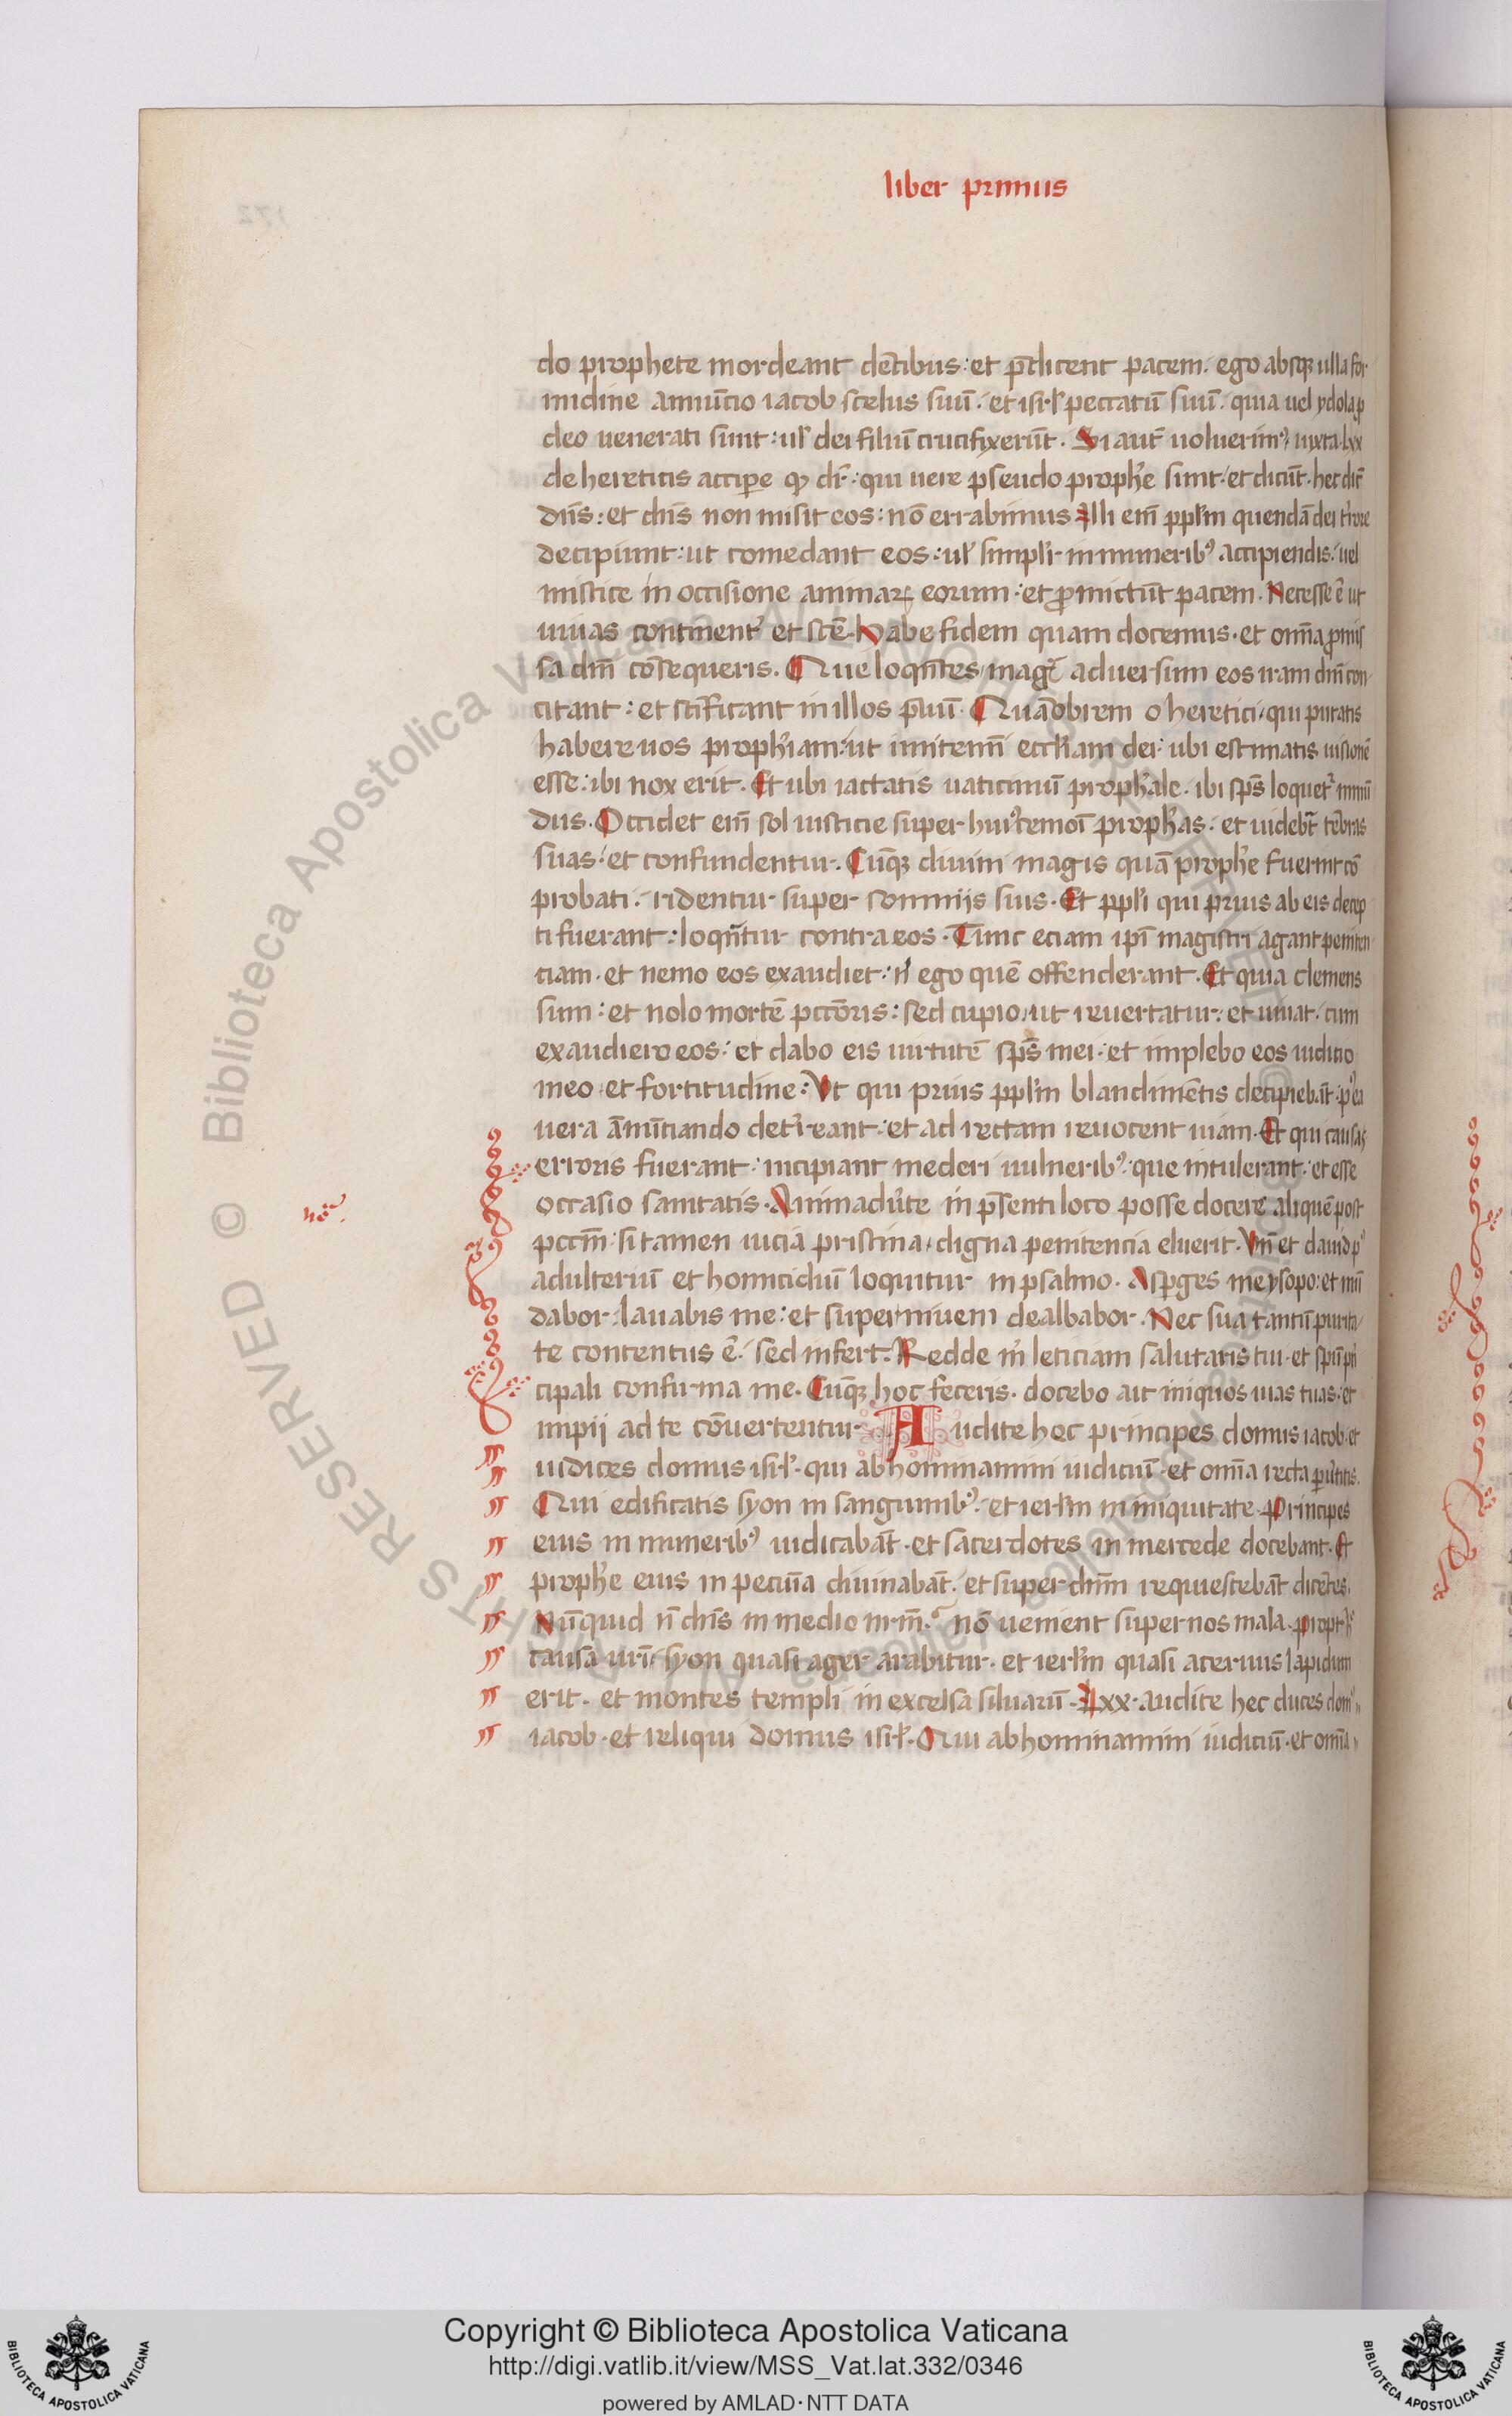 liber primus
do prophete mordeant dẽtibus : et p̃dicent pacem . ego absqꝫ ulla for
midine annũcio iacob scelus suũ . et isrl̓ peccatũ suũ . quia uel ydola p̱
deo uenerati sunt : ul̓ dei filiũ crucifixerũt . Si aut̃ uoluerimꝰ iuxta lxx
de hereticis accipe qꝫ dr̃ : qui uere pseudo proph̓e sunt . et dicũt . hec dic̃
dñs : et dñs non misit eos : nõ errabimus Illi em̃ ppl̓m quendã dei
decipiunt : ut comedant eos : ul̓ simpl̓r in munerib̓ꝰ accipiendis : uel
mistice in occisione animaꝝ eorum : et ꝓmictũt pacem . Necesse ẽ ut
uiuas continent̓ et scẽ . Habe fidem quam docemus . et om̃ia ꝓmis
sa dm̃ cõsequeris . Que loqñtes magl̃ aduersum eos iram dm̃ con
citant : et scĩficant in illos p̃liũ . Quãobrem o heretici qui putatis
habere uos proph̓iam : ut imitem̃i eccl̓iam dei : ubi estimatis uisionẽ
esse : ibi nox erit . Et ubi iactatis uaticiniũ proph̓ale . ibi sp̃s loquet̓ inmũ
dus . Occidet em̃ sol iusticie super huiꝰcemõi proph̓as . et uidebt̃ tẽbras
suas : et confundentur . Cũqꝫ diuini magis quã proph̓e fuerint cõ
probati . ridentur super somnijs suis . Et ppl̓i qui prius ab eis decep
ti fuerant : loqñtur contra eos . Tunc eciam ip̃i magistri agant peniten
ciam . et nemo eos exaudiet : n̓ ego quẽ offenderant . Et quia clemens
sum : et nolo mortẽ pctõris : sed cupio ut reuertatur : et uiuat . cum
exaudiero eos : et dabo eis uirtutẽ sp̃s mei : et implebo eos iudicio
meo et fortitudine : Ut qui prius ppl̓m blandimẽtis decipiebãt : pꝰea
uera ãnũciando det̓reant : et ad rectam reuocent uiam . Et qui causaꝫ
erroris fuerant : incipiant mederi uulneribꝰ : que intulerant : et esse
occasio sanitatis . Animadu̓te in p̃senti loco posse docere aliquẽ post
pccm̃ : si tamen uicia pristina digna penitencia eluerit . Uñ et dauid pꝰ
adulteriũ et homicidiũ loquitur in psalmo . Asp̱ges me ysopo : et mũ
dabor : lauabis me : et super niuem dealbabor . Nec sua tantũ purita
te contentus ẽ : sed infert . Redde m̓ leticiam salutaris tui . et spũ pĩ
cipali confirma me . Cũqꝫ hoc feceris . docebo ait iniquos uias tuas : et
impij ad te cõuertentur Audite hec principes domus iacob et
iudices domus isrl̓ . qui abhominamini iudiciũ . et om̃ia recta pu̓titis .
Qui edificatis syon in sanguinibꝰ . et ierl̓m in iniquitate . Principes
eius in muneribꝰ iudicabãt . et sacerdotes in mercede docebant . Et
proph̓e eius in pecũia diuinabãt . et super dñm requiescebãt dicẽtes .
Nũquid ñ dñs in medio nr̃m . nõ uenient super nos mala . propt̓ h̓
causa uri syon quasi ager arabitur . et ierl̓m quasi aceruus lapidum
erit . et montes templi in excelsa siluarũ . Lxx . audite hec duces domꝰ
iacob . et reliqui domus isrl̓ . Qui abhominamini iudiciũ . et om̃ia
Copyright © Biblioteca Apostolica Vaticana
http://digi.vatlib.it/view/MSS_Vat.lat.332/0346
powered by AMLAD · NTT DATA